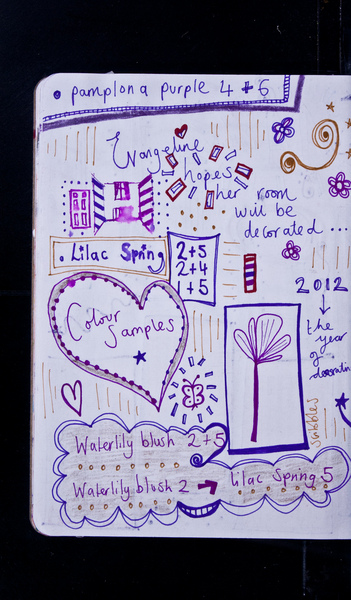 pamplona purple 4 + 6
Evangeline
hopes
her room
will be
decorated ....
Lilac Spring
2+5
2+4
1+5
2012
the
year
of
decoratin
Colour
Samples
scribbles
Waterlily blush 2+5
Waterlily blush 2 → lilac Spring 5